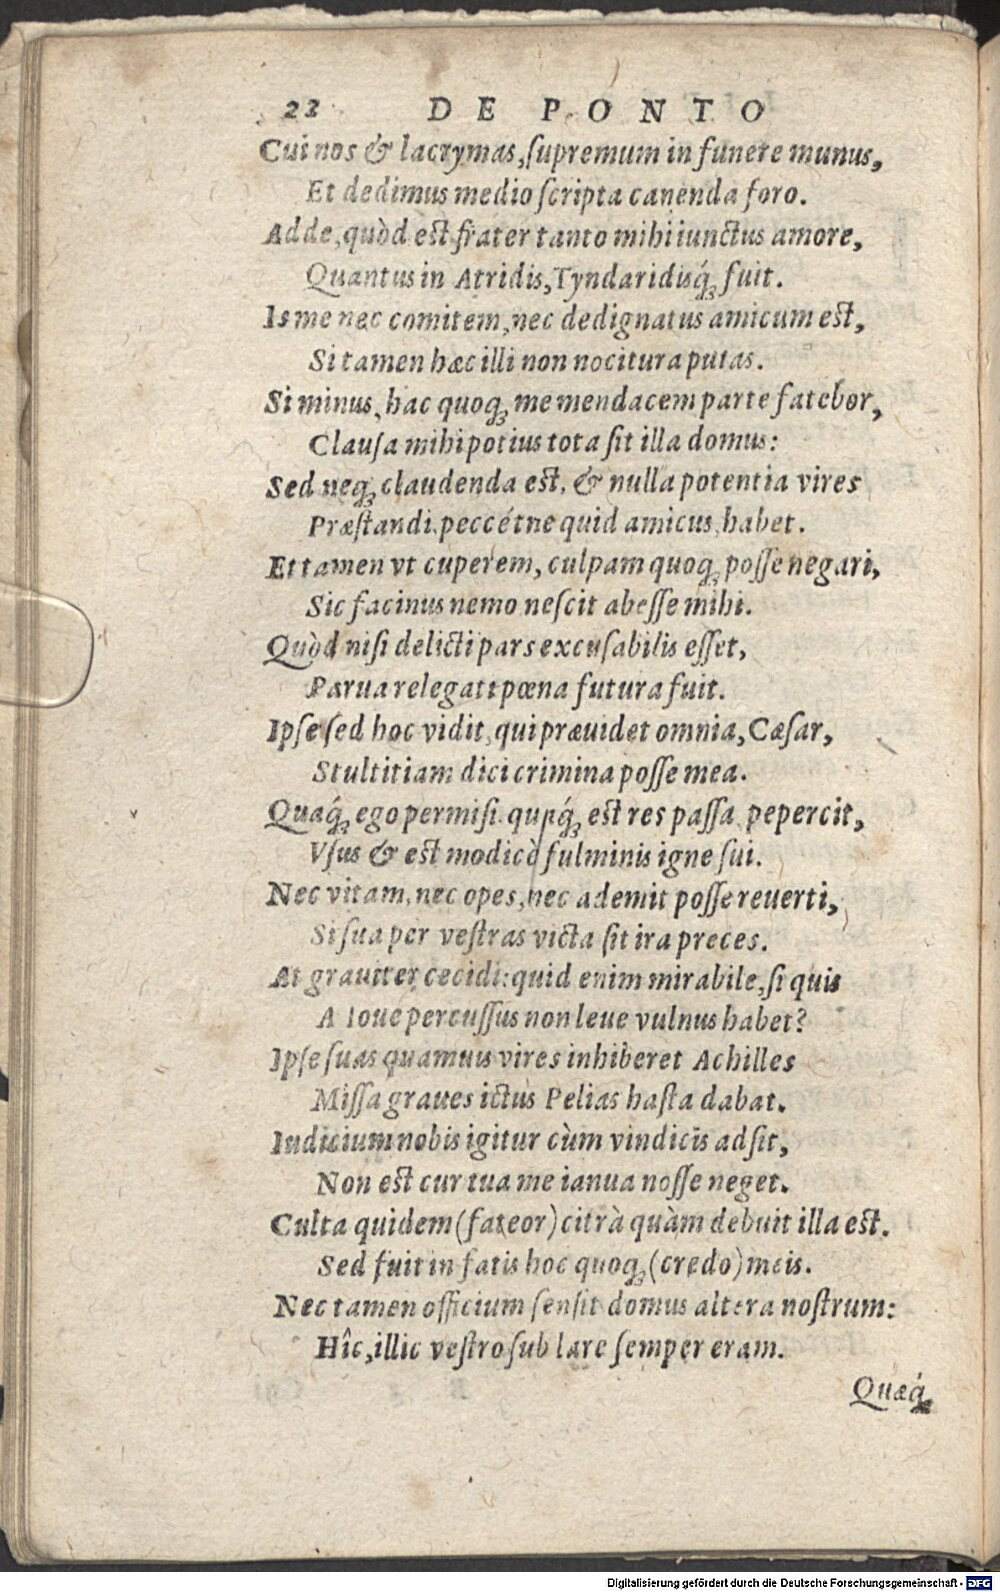 22 DE PONTO
Cui nos & lacrymas, ſupremum in funere munus,
Et dedimus medio ſcripta canenda foro.
Adde, quòd eſt frater tanto mihi iunctus amore,
Quantus in Atridis, Tyndaridisq́ꝫ fuit.
Is me nec comitem, nec dedignatus amicum eſt,
Si tamen hæc illi non nocitura putas.
Si minus, hac quoqꝫ me mendacem parte fatebor,
Clauſa mihi potius tota ſit illa domus:
Sed neqꝫ claudenda eſt, & nulla potentia vires
Præſtandi, peccétne quid amicus, habet.
Et tamen vt cuperem, culpam quoqꝫ poſſe negari,
Sic facinus nemo neſcit abeſſe mihi.
Quòd niſi delicti pars excuſabilis eſſet,
Parua relegati pœna futura fuit.
Ipſe ſed hoc vidit, qui præuidet omnia, Cæſar,
Stultitiam dici crimina poſſe mea.
Quaq́ꝫ ego permiſi, quaq́ꝫ eſt res paſſa, pepercit,
Vſus & eſt modicò fulminis igne ſui.
Nec vitam, nec opes, nec ademit poſſe reuerti,
Si ſua per veſtras victa ſit ira preces.
At grauiter cecidi: quid enim mirabile, ſi quis
A Ioue percuſſus non leue vulnus habet?
Ipſe ſuas quamuis vires inhiberet Achilles
Miſſa graues ictus Pelias haſta dabat.
Iudicium nobis igitur cùm vindicis adſit,
Non eſt cur tua me ianua noſſe neget.
Culta quidem (fateor) citrà quàm debuit illa eſt.
Sed fuit in fatis hoc quoqꝫ (credo) meis.
Nec tamen officium ſenſit domus altera noſtrum:
Hîc, illic veſtro ſub lare ſemper eram.
Quæq́ꝫ
Digitalisierung gefördert durch die Deutsche Forschungsgemeinschaft - DFG